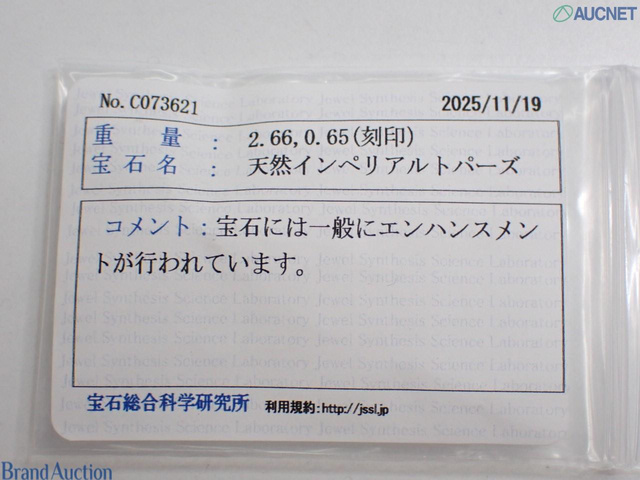 AUCNET
No. C073621
2025/11/19
重量 : 2.66, 0.65(刻印)
宝石名 : 天然インペリアルトパーズ
コメント : 宝石には一般にエンハンスメン
トが行われています。
Jewel Synthesis Science Laboratory
宝石総合科学研究所 利用規約:http://jssl.jp
Brand Auction